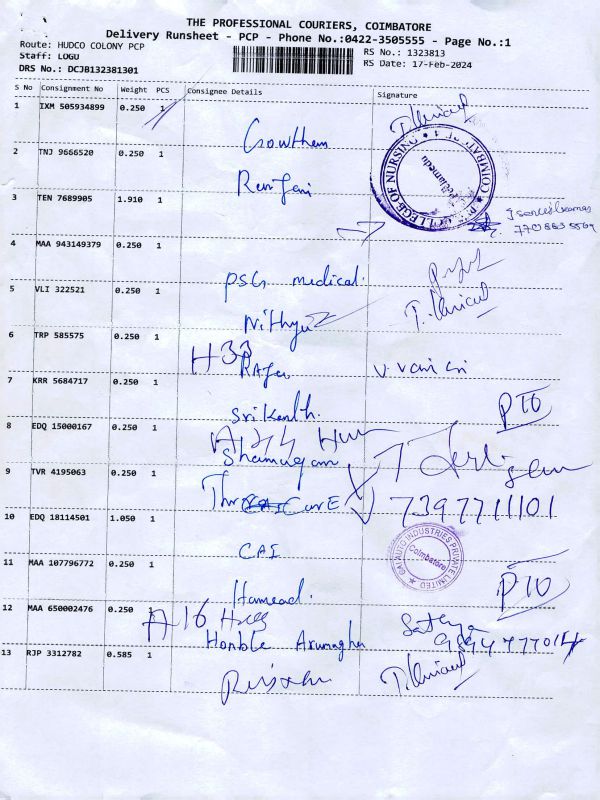 THE PROFESSIONAL COURIERS, COIMBATORE
Delivery Runsheet - PCP - Phone No.:0422-3505555 - Page No.:1
Route: HUDCO COLONY PCP
Staff: LOGU
DRS No.: DCJB132381301
RS No.: 1323813
RS Date: 17-Feb-2024
S No Consignment No Weight PCS Consignee Details Signature
1 IXM 505934899 0.250 1
Gowtham
2 TNJ 9666520 0.250 1
COLLEGE OF NURSING
COIMBATORE
Peelamedu
3 TEN 7689905 1.910 1
4 MAA 943149379 0.250 1
PSG medical.
5 VLI 322521 0.250 1
Nithya
6 TRP 585575 0.250 1
H 33
Raja
7 KRR 5684717 0.250 1
Srikanth.
PTO
8 EDQ 15000167 0.250 1
Shanmugam
9 TVR 4195063 0.250 1
CARE
7397711101
10 EDQ 18114501 1.050 1
CAI
CAI AUTO INDUSTRIES PRIVATE LIMITED
Coimbatore
11 MAA 107796772 0.250 1
Hameed.
PTO
12 MAA 650002476 0.250 1
A16
Honble Arumugha
Sathya
13 RJP 3312782 0.585 1